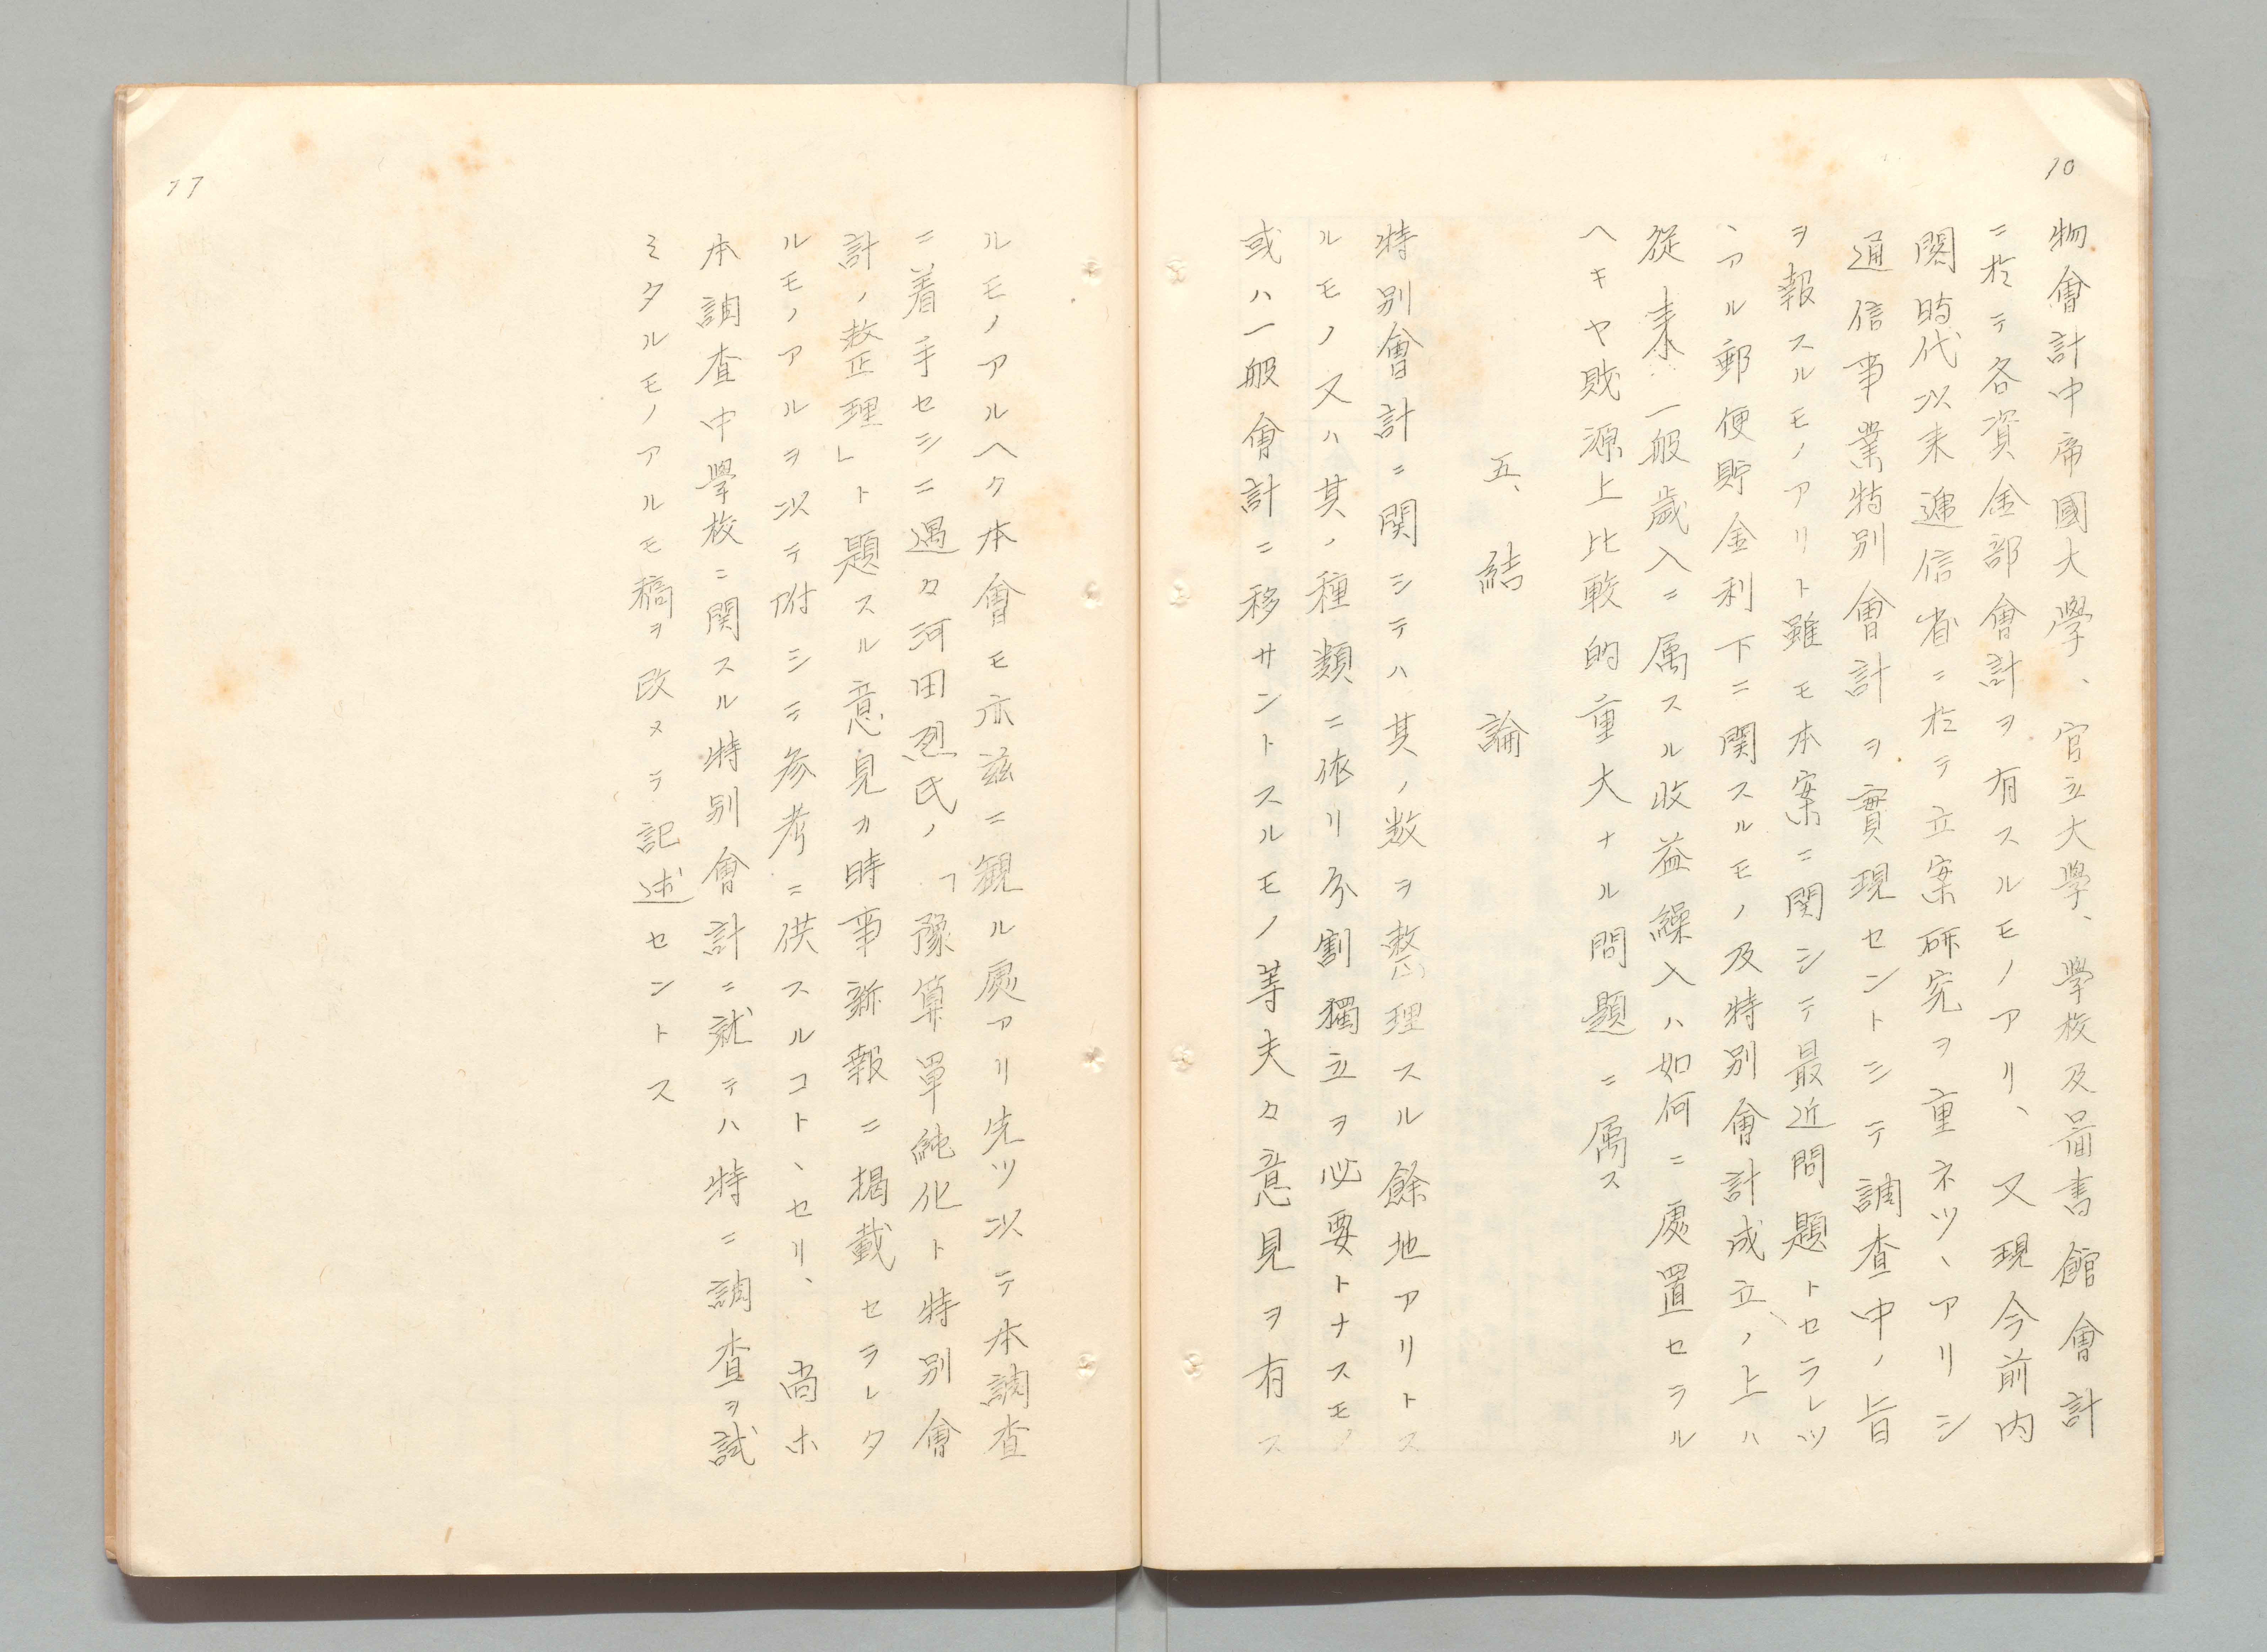 10
物會計中帝國大學、官立大學、學校及圖書館會計
ニ於テ各資金部會計ヲ有スルモノアリ、又現今前内
閣時代以来逓信省ニ於テ立案研究ヲ重ネツヽアリシ
通信事業特別會計ヲ實現セントシテ調査中ノ旨
ヲ報スルモノアリト雖モ本案ニ関シテ最近問題トセラレツ
ヽアル郵便貯金利下ニ関スルモノ及特別會計成立ノ上ハ
従来一般歳入ニ属スル收益繰入ハ如何ニ處置セラル
ヘキヤ財源上比較的重大ナル問題ニ属ス
五、結論
特別會計ニ関シテハ其ノ数ヲ整理スル餘地アリトス
ルモノ又ハ其ノ種類ニ依リ分割獨立ヲ必要トナスモノ
或ハ一般會計ニ移サントスルモノ等夫々意見ヲ有ス
ルモノアルヘク本會モ亦茲ニ観ル處アリ先ツ以テ本調査
ニ着手セシニ遇々河田烈氏ノ「豫算單純化ト特別會
計ノ整理」ト題スル意見カ時事新報ニ掲載セラレタ
ルモノアルヲ以テ附シテ参考ニ供スルコトヽセリ、尚ホ
本調査中學校ニ関スル特別會計ニ就テハ特ニ調査ヲ試
ミタルモノアルモ稿ヲ改メテ記述セントス
17